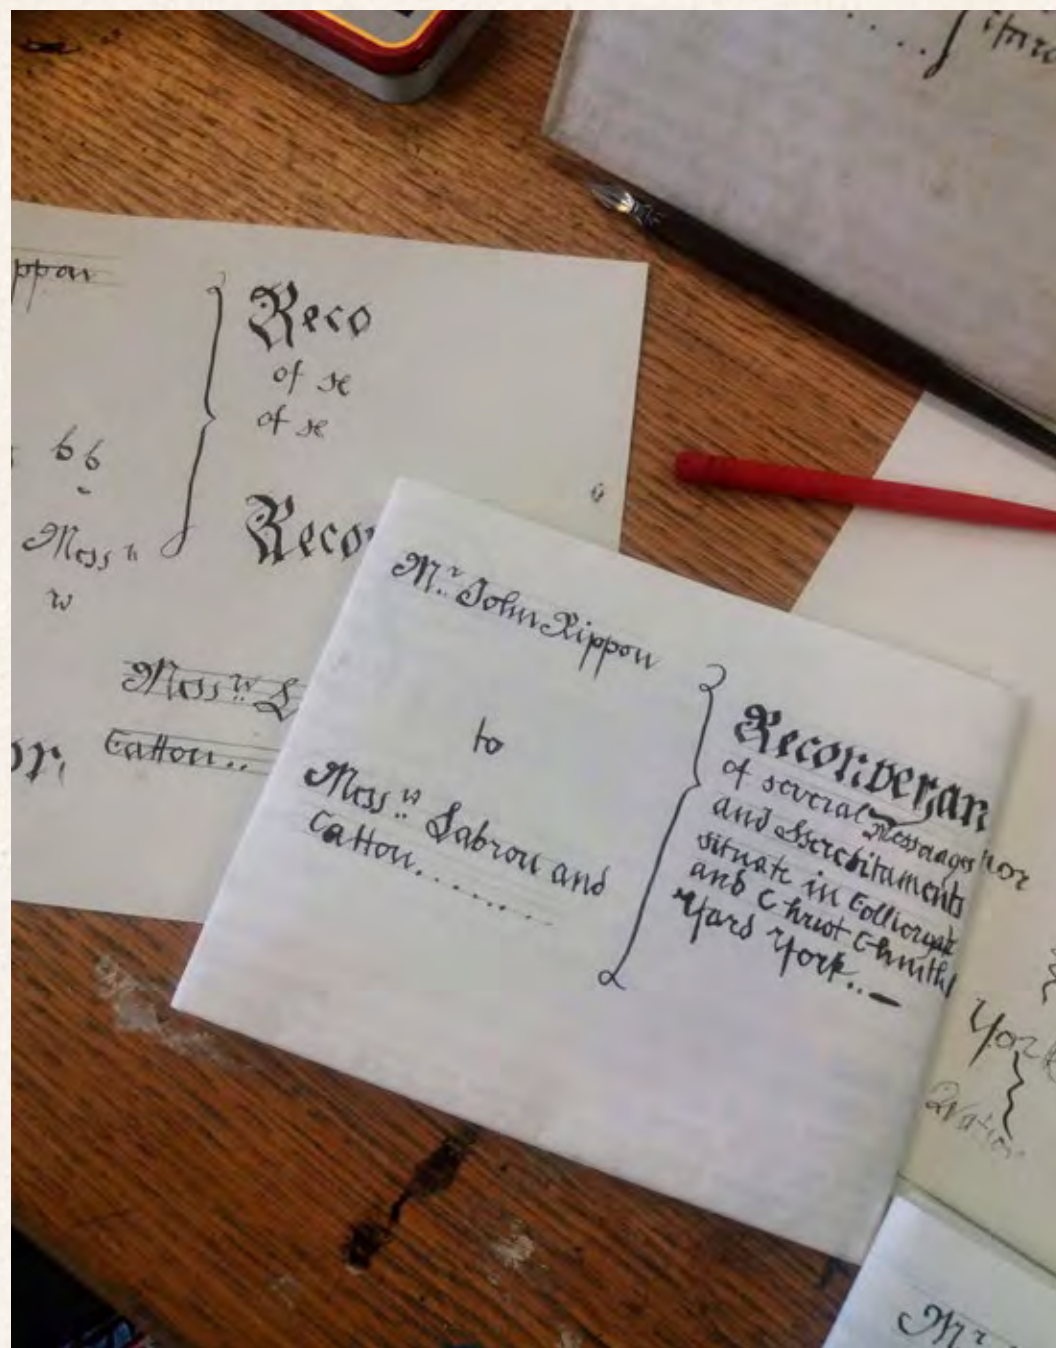 ppon
Reco
of se
of se
66
Mess rs
Recon
Mess rs L
Catton..
or.
Mr. John Rippon
to
Mess rs Labron and
Catton.......
Reconveyan
of several Messuages
and Hereditaments
situate in Colliergate
and Christ Church
Yard York..
York
Mr